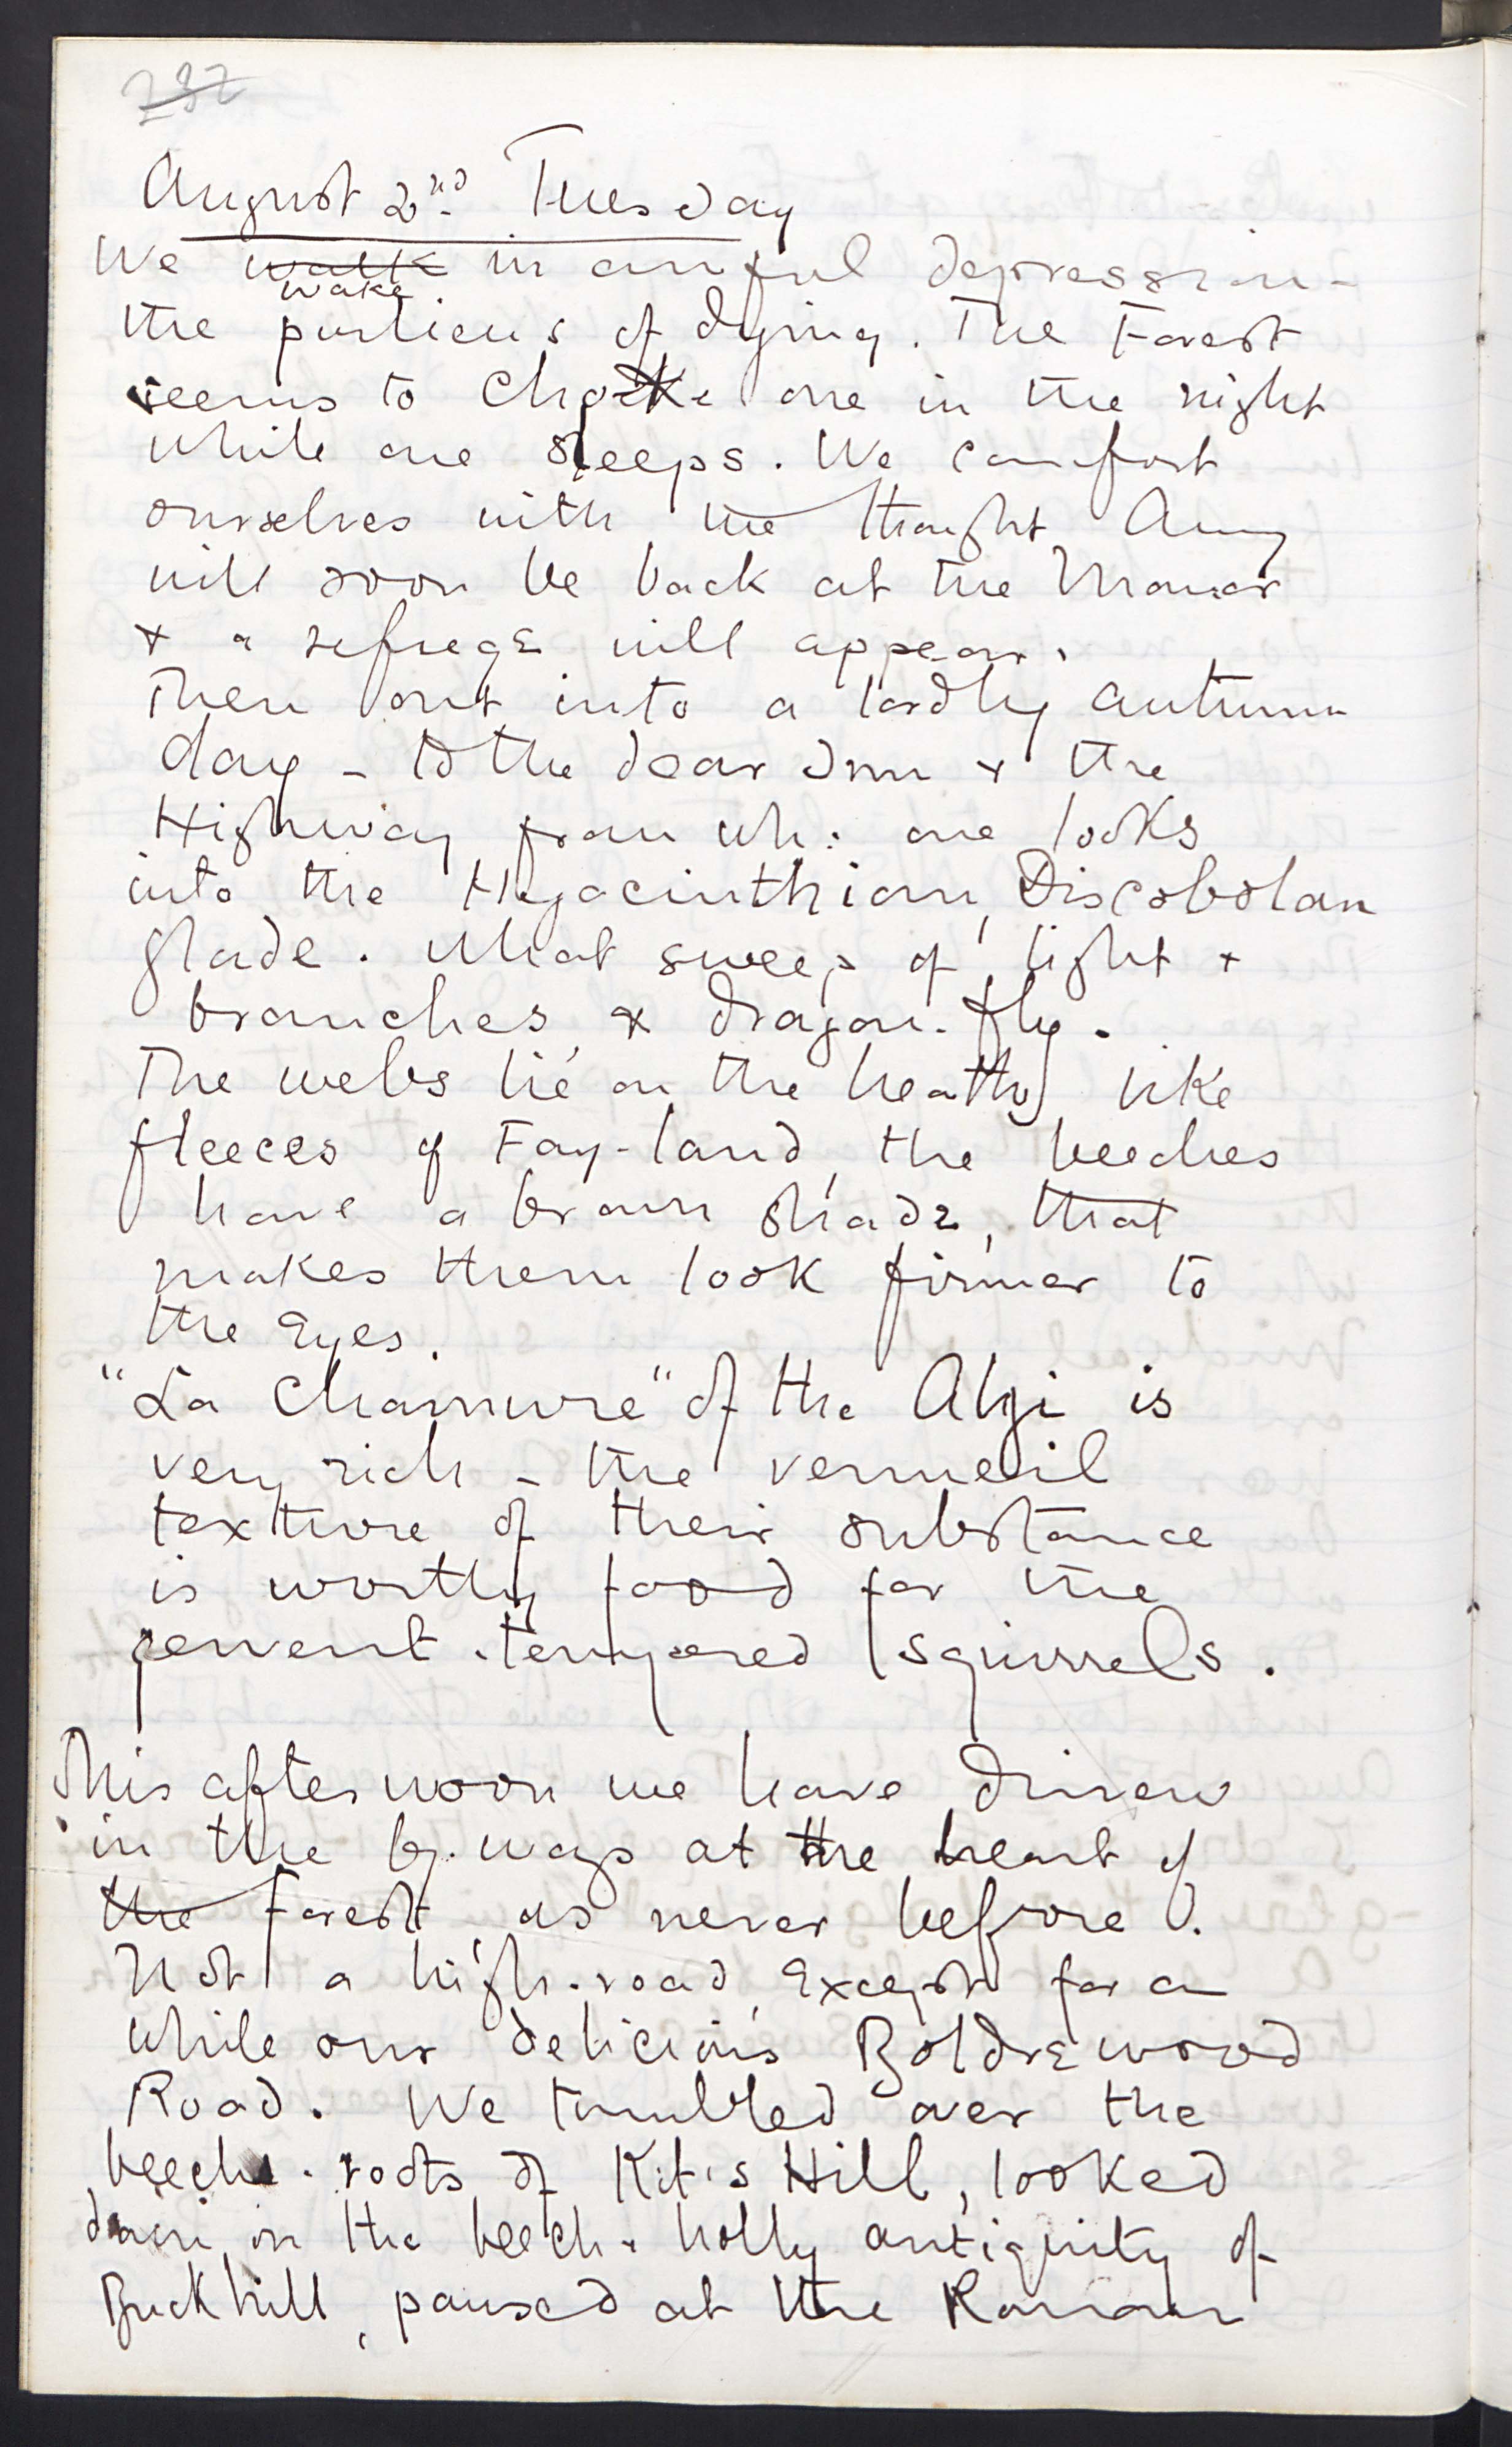 237
August 2nd Tuesday
We walk in awful depression -
wake
the portions of dying. The Forest
seems to choke one in the night
while one sleeps. We comfort
ourselves with the thought Amy
will soon be back at the Manor
& a refuge will appear.
Then out into a lordly autumn
day - to the dear Inn & the
Highway from wh: one looks
into the Hyacinthian, Discobolan
glade. What sweep of light &
branches & dragon-fly.
The webs lie on the heath like
fleeces of Fay-land, the beeches
have a brown shade, that
makes them look firmer to
the Eyes.
"La Charnure" of the Algi is
very rich - the vermeil
texture of their substance
is worthy food for the
fervent-tempered squirrels.
This afternoon we have driven
in the by-ways at the heart of
the Forest as never before.
Not a high-road, except for a
while our delicious Boldrewood
Road. We tumbled over the
beech-roots of Kit's Hill, looked
down on the beech & holly antiquity of
Buckhill, paused at the Roman